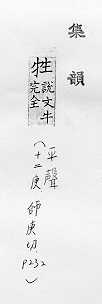 集韻
牲說文牛完全
平聲
（十二庚 師庚切 P232）